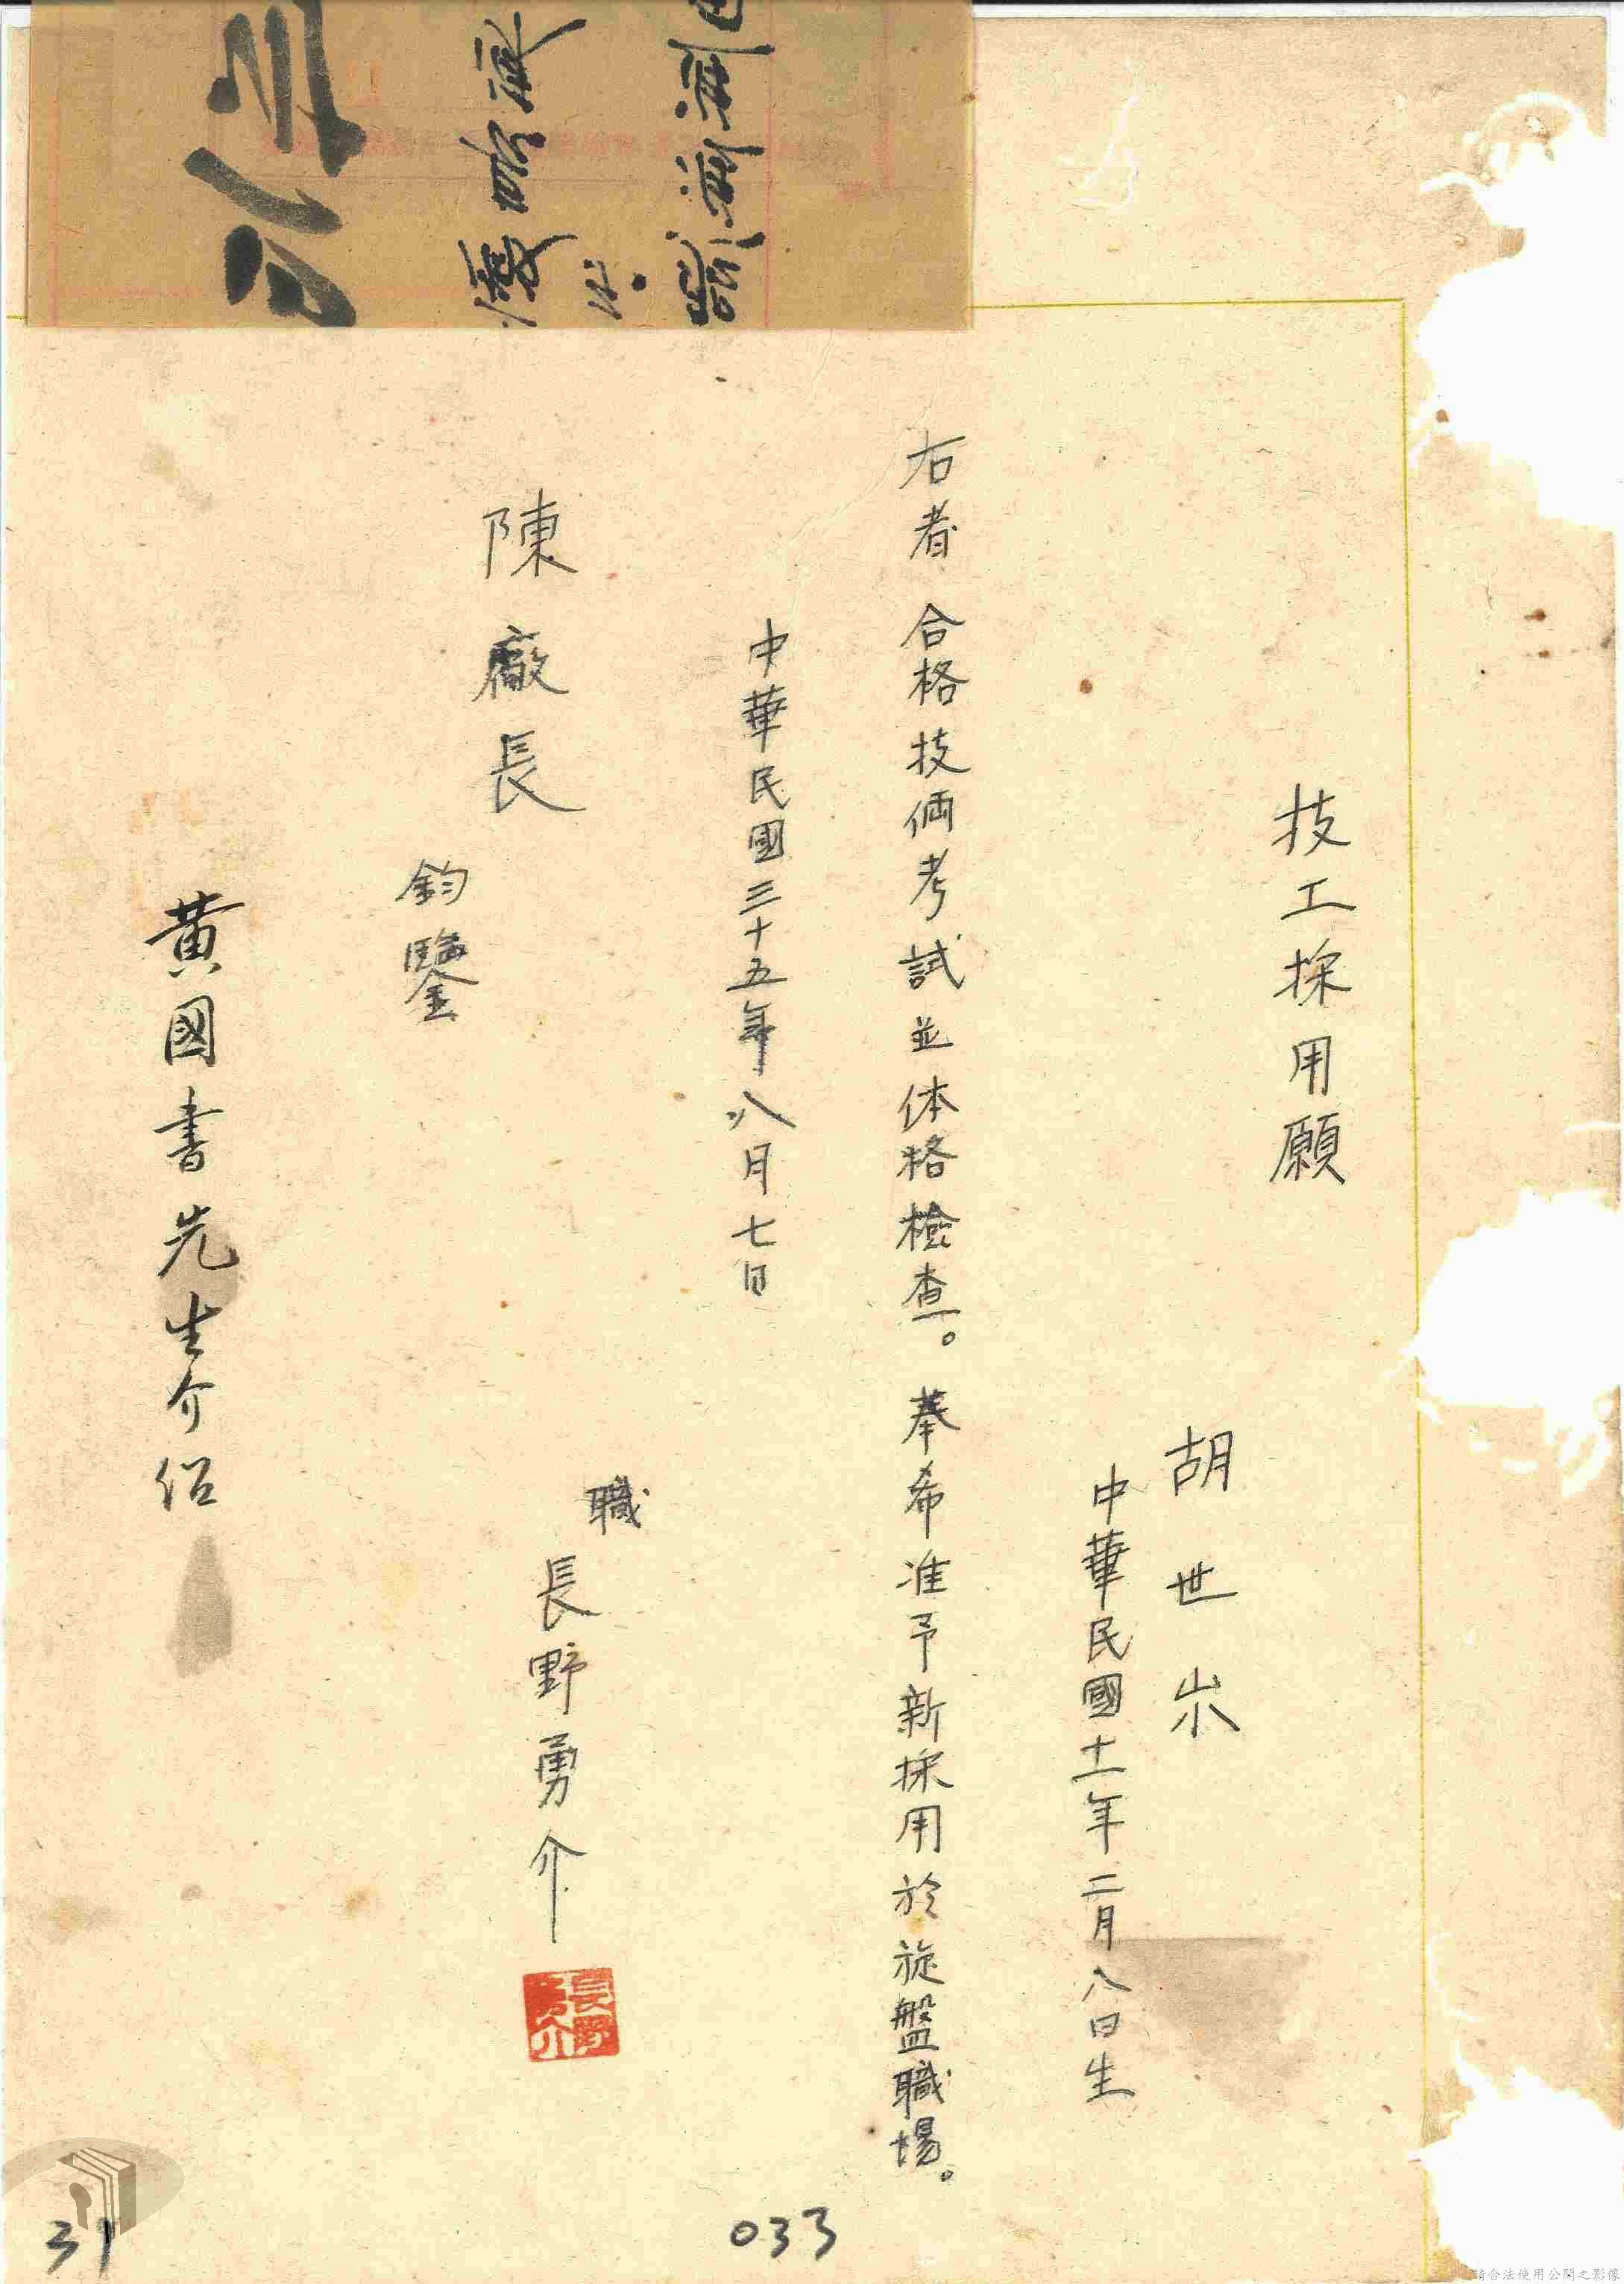 技工採用願
胡世岽
中華民國十一年二月八日生
右者 合格技倆考試並体格檢查。奉希准予新採用於旋盤職場。
中華民國三十五年八月七日
職
長野勇介
長野勇介
陳廠長
鈞鑒
黃國書先生介绍
033
31
請合法使用公開之影像